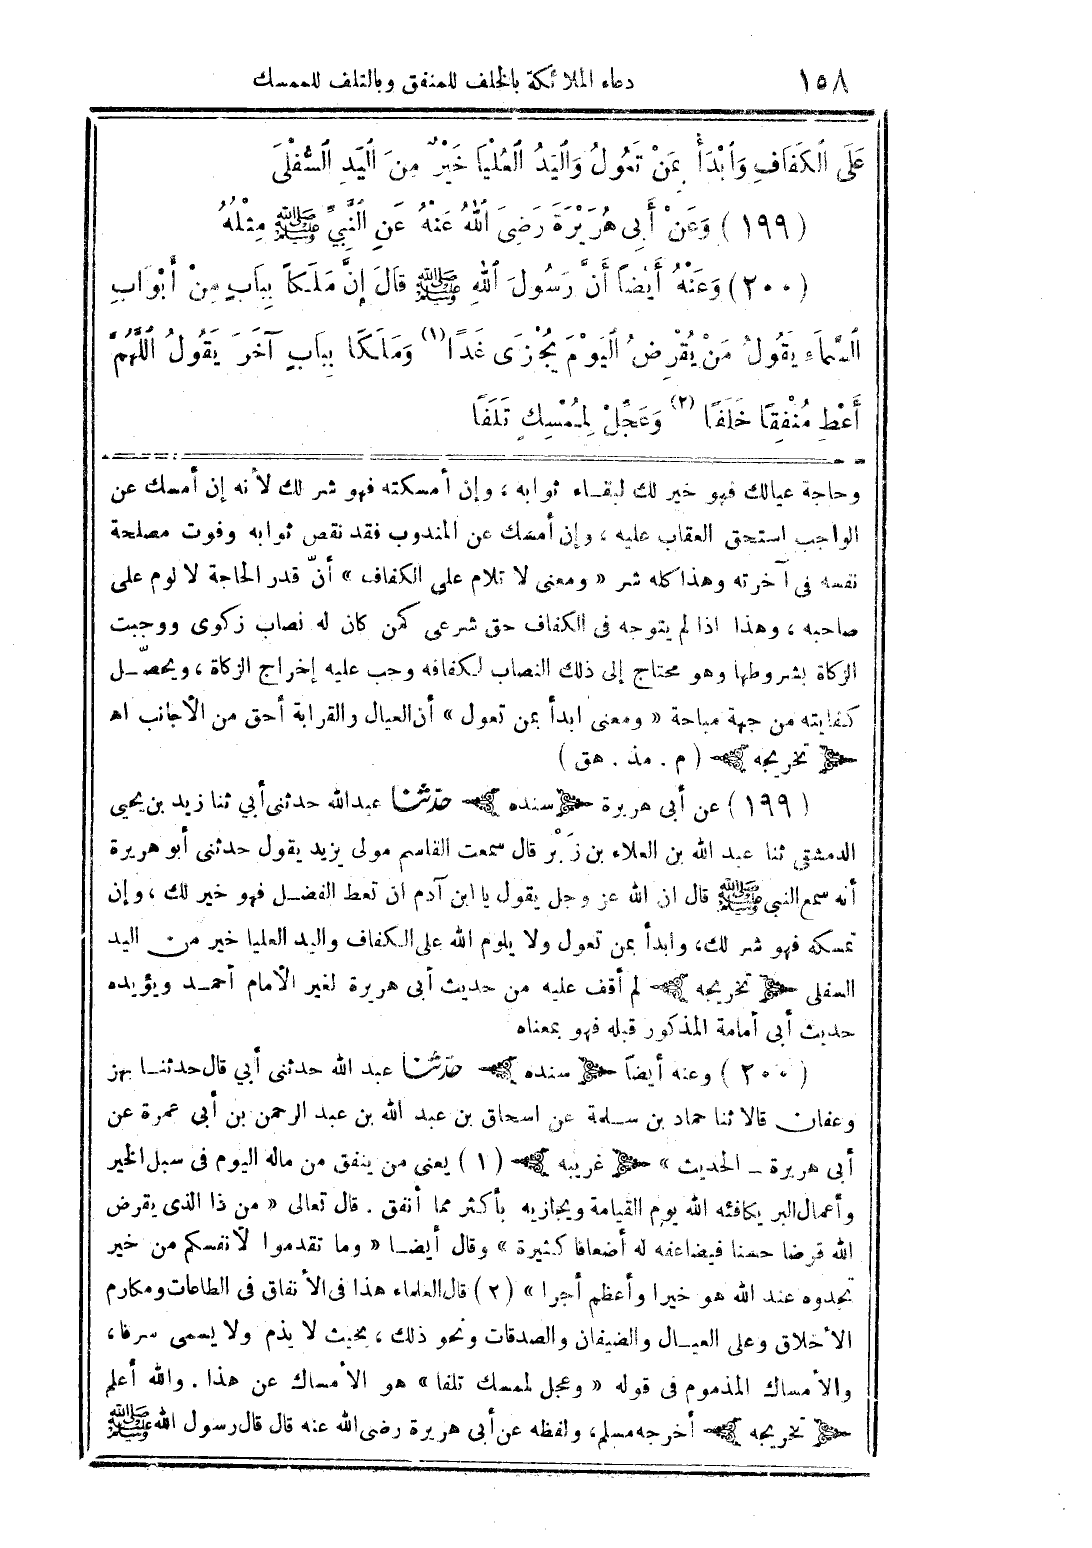 ١٥٨ دعاء الملائكة بالخلف للمنفق وبالتلف للممسك
عَلَى الْكَفَافِ وَابْدَأْ بِمَنْ تَعُولُ وَالْيَدُ الْعُلْيَا خَيْرٌ مِنَ الْيَدِ السُّفْلَى
(١٩٩) وَعَنْ أَبِى هُرَيْرَةَ رَضِىَ اللهُ عَنْهُ عَنِ النَّبِيِّ ﷺ مِثْلُهُ
(٢٠٠) وَعَنْهُ أَيْضًا أَنَّ رَسُولَ اللهِ ﷺ قَالَ إِنَّ مَلَكًا بِبَابٍ مِنْ أَبْوَابِ
السَّمَاءِ يَقُولُ مَنْ يُقْرِضُ الْيَوْمَ يُجْزَى غَدًا (١) وَمَلَكًا بِبَابٍ آخَرَ يَقُولُ اللَّهُمَّ
أَعْطِ مُنْفِقًا خَلَفًا (٢) وَعَجِّلْ لِمُمْسِكٍ تَلَفًا
وحاجة عيالك فهو خير لك لبقاء ثوابه ، وإن أمسكته فهو شر لك لأنه إن أمسك عن
الواجب استحق العقاب عليه ، وإن أمسك عن المندوب فقد نقص ثوابه وفوت مصلحة
نفسه فى آخرته وهذا كله شر « ومعنى لا تلام على الكفاف » أنّ قدر الحاجة لا لوم على
صاحبه ، وهذا اذا لم يتوجه فى الكفاف حق شرعى كمن كان له نصاب زكوى ووجبت
الزكاة بشروطها وهو محتاج إلى ذلك النصاب لكفافه وجب عليه إخراج الزكاة ، ويحصّل
كفايته من جهة مباحة « ومعنى ابدأ بمن تعول » أن العيال والقرابة أحق من الأجانب اهـ
تخريجه ( م . مذ . هق )
(١٩٩) عن أبى هريرة سنده حدّثنا عبدالله حدثنى أبي ثنا زيد بن يحيى
الدمشقى ثنا عبد الله بن العلاء بن زَبْر قال سمعت القاسم مولى يزيد يقول حدثنى أبو هريرة
أنه سمع النبي ﷺ قال ان الله عز وجل يقول يا ابن آدم ان تعط الفضل فهو خير لك ، وإن
تمسكه فهو شر لك، وابدأ بمن تعول ولا يلوم الله على الكفاف واليد العليا خير من اليد
السفلى تخريجه لم أقف عليه من حديث أبى هريرة لغير الأمام أحمد ويؤيده
حديث أبى أمامة المذكور قبله فهو بمعناه
(٢٠٠) وعنه أيضاً سنده حدّثنا عبد الله حدثنى أبي قال حدثنا بهز
وعفان قالا ثنا حماد بن سلمة عن اسحاق بن عبد الله بن عبد الرحمن بن أبى عمرة عن
أبى هريرة ـ الحديث » غريبه (١) يعنى من ينفق من ماله اليوم فى سبل الخير
وأعمال البر يكافئه الله يوم القيامة ويجازيه بأكثر مما أنفق . قال تعالى « من ذا الذى يقرض
الله قرضا حسنا فيضاعفه له أضعافا كثيرة » وقال أيضا « وما تقدموا لأنفسكم من خير
تجدوه عند الله هو خيرا وأعظم أجرا » (٢) قال العلماء هذا فى الأنفاق فى الطاعات ومكارم
الأخلاق وعلى العيال والضيفان والصدقات ونحو ذلك ، بحيث لا يذم ولا يسمى سرفا،
والأمساك المذموم فى قوله « وعجل لممسك تلفا » هو الأمساك عن هذا . والله أعلم
تخريجه أخرجه مسلم، ولفظه عن أبى هريرة رضى الله عنه قال قال رسول الله ﷺ